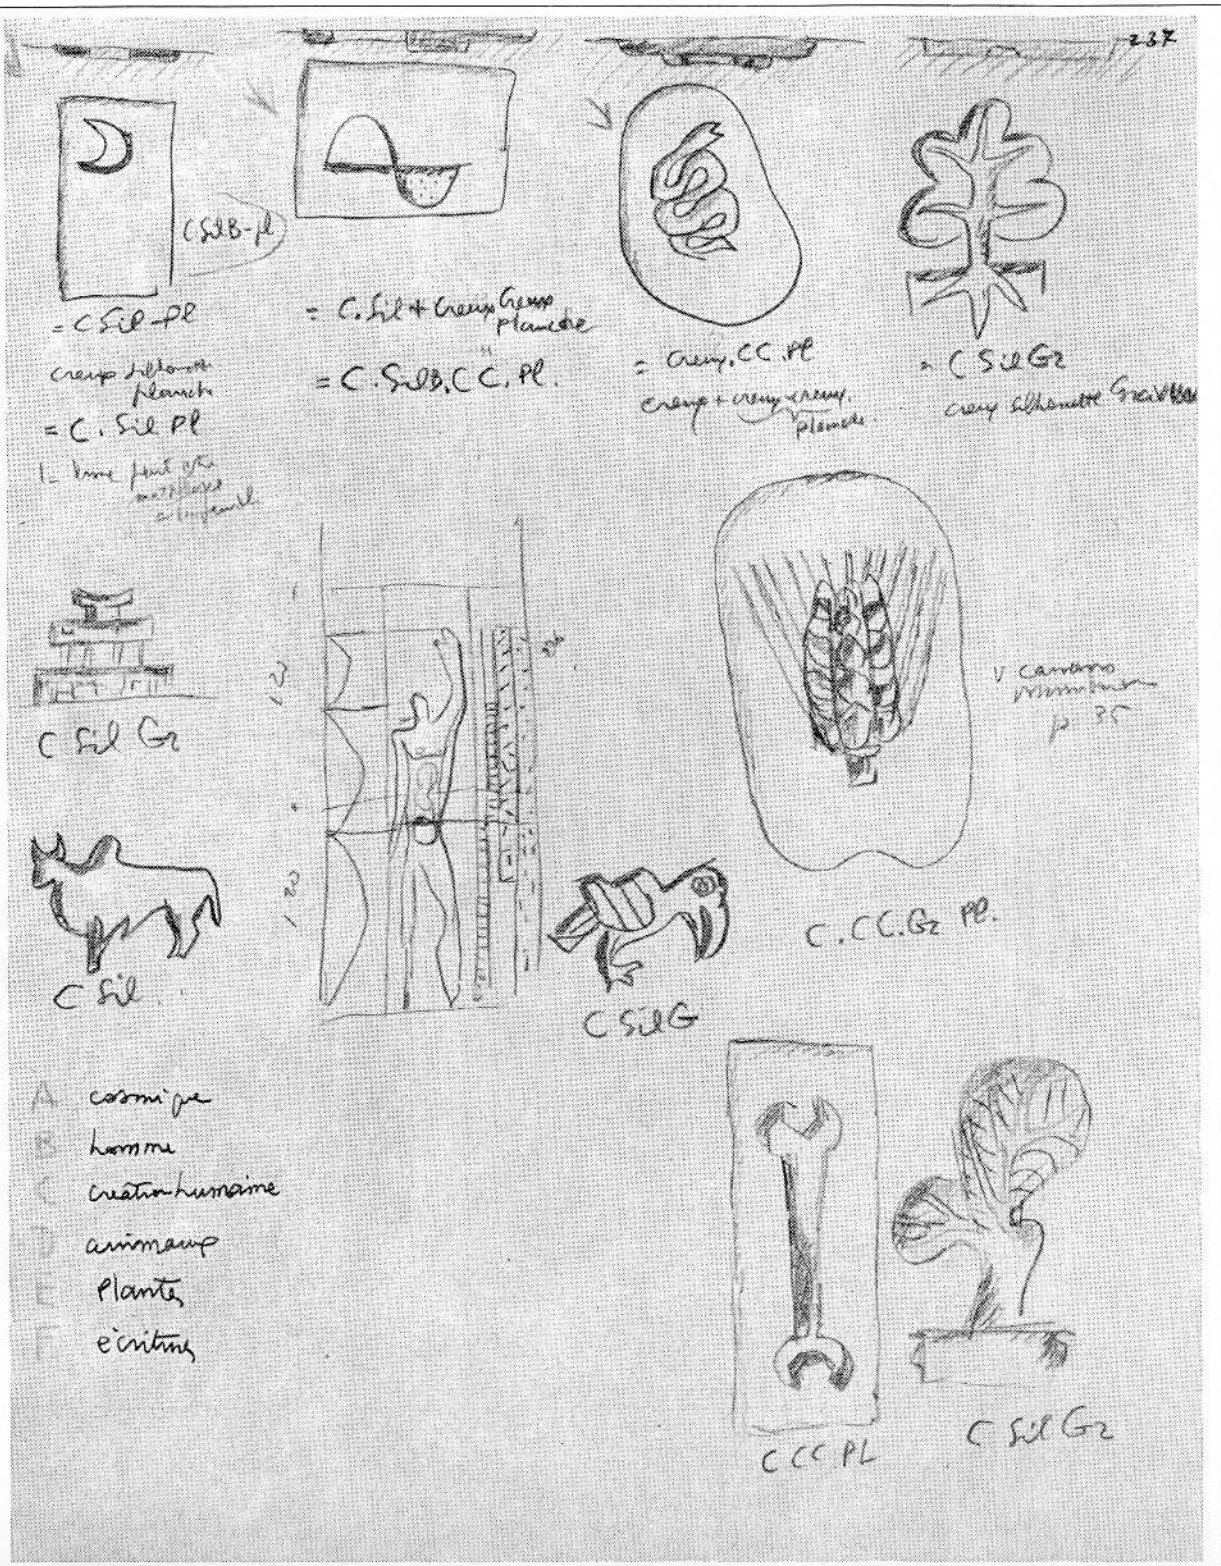 237
C SilB-pl
= C Sil-Pl
creux silhouette
planche
= C. Sil Pl
= C. Sil + Creux Creux
planche
= C. SilB. C C. Pl.
= Creux. CC. Pl
creux + creux-creux.
planche.
= C Sil Gr
creux silhouette Gravure
C Sil Gr
C Sil
1 20
1 20
C Sil G
C. CC. Gr Pl.
p 35
A cosmique
B homme
C création humaine
D animaux
E Plantes
F écritures
C C C PL
C Sil Gr